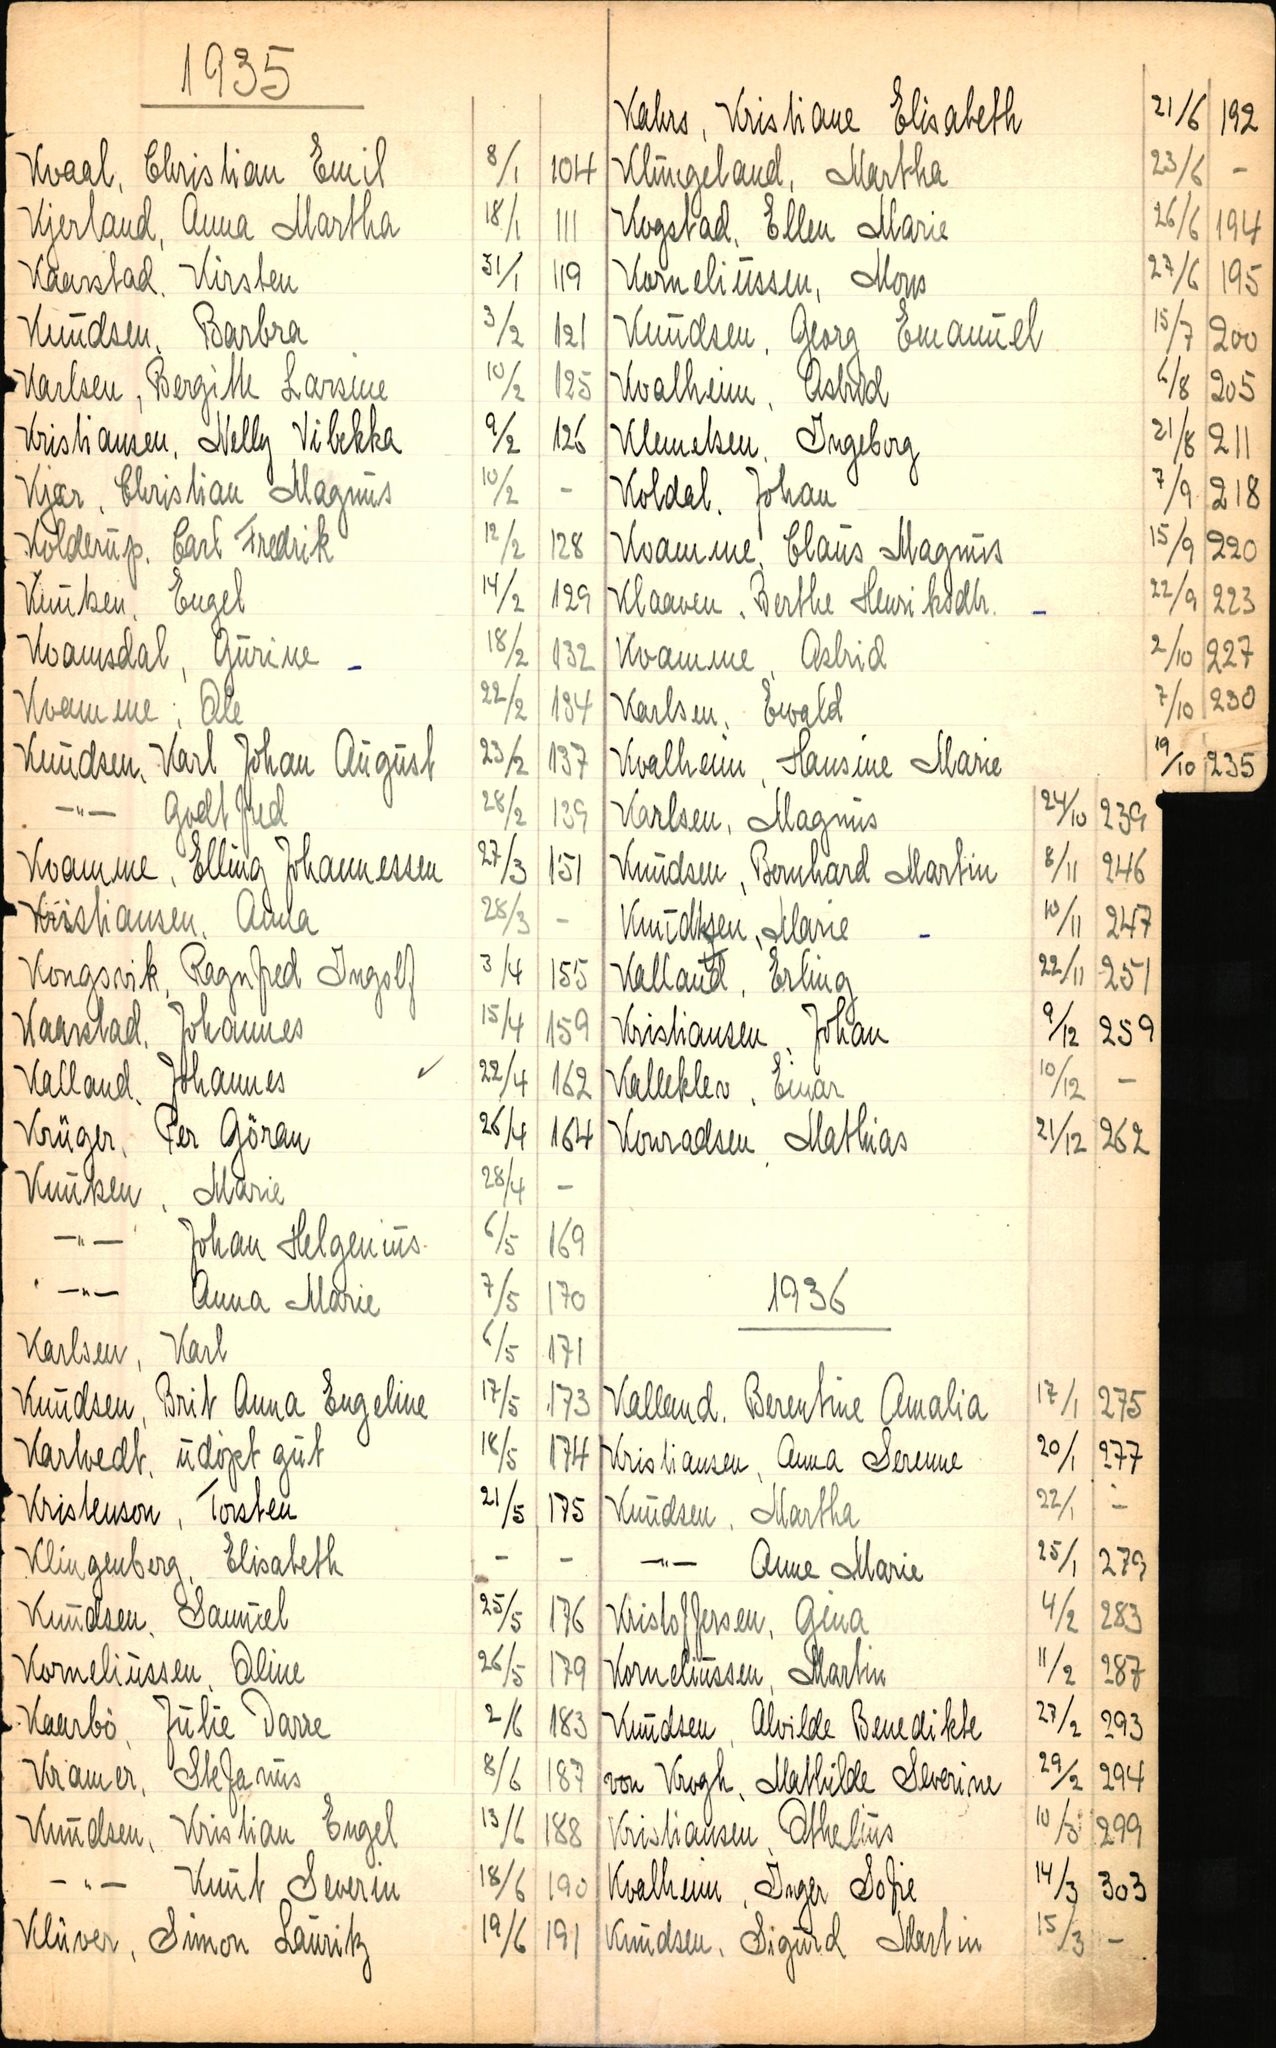 1935
Kvaal, Christian Emil 8/1 104
Kjerland, Anna Martha 18/1 111
Kaarstad, Kirsten 31/1 119
Knudsen, Barbra 3/2 121
Karlsen, Bergitte Larsine 10/2 125
Kristiansen, Nelly Vibekka 9/2 126
Kjær, Christian Magnus 10/2 -
Kolderup, Carl Fredrik 12/2 128
Knutsen, Engel 14/2 129
Kvamsdal, Gurine - 18/2 132
Kvamme, Ole 22/2 134
Knudsen, Karl Johan August 23/2 137
-"- Godtfred 28/2 139
Kvamme, Elling Johannessen 27/3 151
Kristiansen, Anna 28/3 -
Kongsvik, Ragnfred Ingolf 3/4 155
Kaarstad, Johannes 15/4 159
Kalland, Johannes ✓ 22/4 162
Krüger, Per Göran 26/4 164
Knutsen, Marie 28/4 -
-"- Johan Helgenius 6/5 169
-"- Anna Marie 7/5 170
Karlsen, Karl 6/5 171
Knudsen, Brit Anna Engeline 17/5 173
Kartvedt, udöpt gut 18/5 174
Kristenson, Torsten 21/5 175
Klingenberg, Elisabeth - -
Knudsen, Samuel 25/5 176
Korneliussen, Oline 26/5 179
Kaarbö, Julie Dorre 2/6 183
Kramer, Stefanus 8/6 187
Knudsen, Kristian Engel 13/6 188
-"- Knut Severin 18/6 190
Klüver, Simon Lauritz 19/6 191
Kahrs, Kristiane Elisabeth 21/6 192
Klungeland, Martha 23/6 -
Kogstad, Ellen Marie 26/6 194
Korneliussen, Mons 27/6 195
Knudsen, Georg Emanuel 15/7 200
Kvalheim, Astrid 6/8 205
Klemetsen, Ingeborg 21/8 211
Koldal, Johan 7/9 218
Kvamme, Claus Magnus 15/9 220
Klaaven, Berthe Henriksdtr. - 22/9 223
Kvamme, Astrid 2/10 227
Karlsen, Ewald 7/10 230
Kvalheim, Hansine Marie 19/10 235
Karlsen, Magnus 24/10 239
Knudsen, Bernhard Martin 8/11 246
Knudtsen, Marie - 10/11 247
Kalland, Erling 22/11 251
Kristiansen, Johan 9/12 259
Kalleklev, Einar 10/12 -
Konradsen, Mathias 21/12 262
1936
Kalland, Berentine Amalia 17/1 275
Kristiansen, Anna Serenne 20/1 277
Knudsen, Martha 22/1 -
-"- Anne Marie 25/1 279
Kristoffersen, Gina 4/2 283
Korneliussen, Martin 11/2 287
Knudsen, Alvilde Benedikte 27/2 293
von Krogh, Mathilde Severine 29/2 294
Kristiansen, Othelius 10/3 299
Kvalheim, Inger Sofie 14/3 303
Knudsen, Sigurd Martin 15/3 -